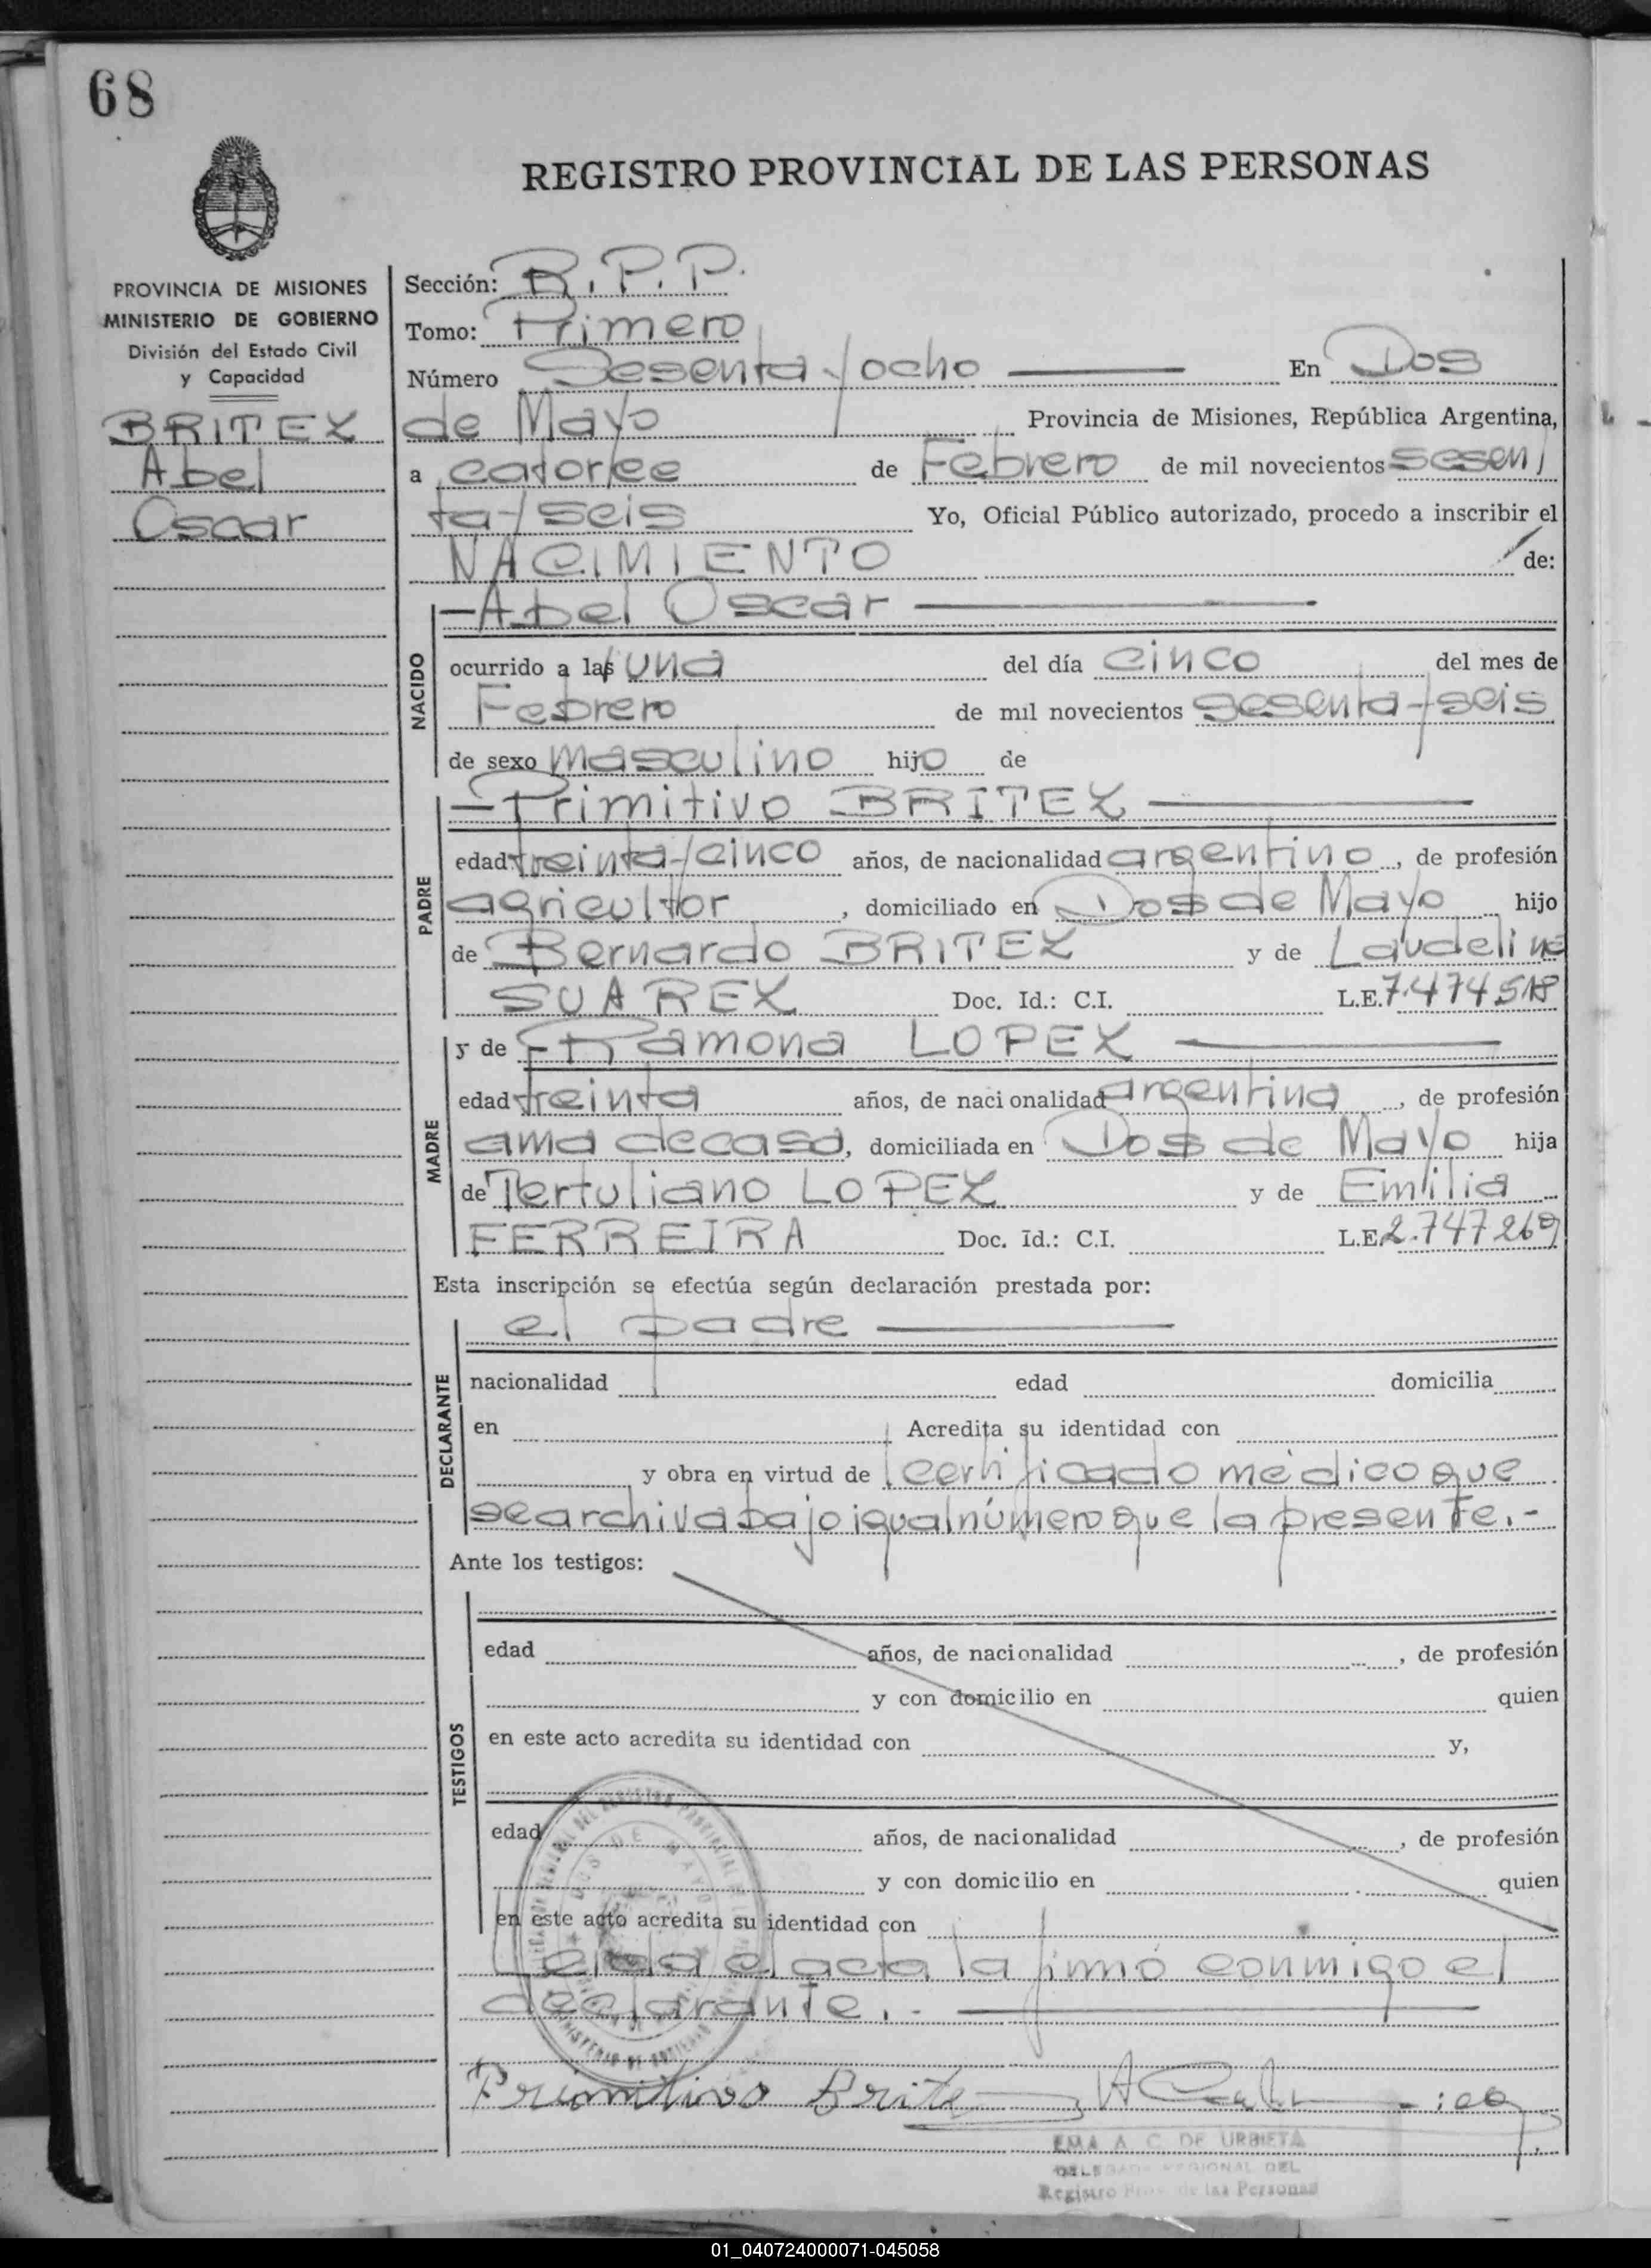 68
REGISTRO PROVINCIAL DE LAS PERSONAS
PROVINCIA DE MISIONES
MINISTERIO DE GOBIERNO
División del Estado Civil
y Capacidad
BRITEZ
Abel
Oscar
Sección: R.P.P.
Tomo: Primero
Número Sesenta y ocho En Dos
de Mayo Provincia de Misiones, República Argentina,
a catorce de Febrero de mil novecientos sesen
ta y seis Yo, Oficial Público autorizado, procedo a inscribir el
NACIMIENTO de:
NACIDO
Abel Oscar
ocurrido a las una del día cinco del mes de
Febrero de mil novecientos sesenta y seis
de sexo masculino hijo de
PADRE
Primitivo BRITEZ
edad treinta y cinco años, de nacionalidad argentino, de profesión
agricultor, domiciliado en Dos de Mayo hijo
de Bernardo BRITEZ y de Laudelina
SUAREZ Doc. Id.: C.I. L.E. 7.474518
MADRE
y de Ramona LOPEZ
edad treinta años, de nacionalidad argentina, de profesión
ama de casa, domiciliada en Dos de Mayo hija
de Tertuliano LOPEZ y de Emilia
FERREIRA Doc. Id.: C.I. L.E. 2.747269
Esta inscripción se efectúa según declaración prestada por:
DECLARANTE
el padre
nacionalidad edad domicilia
en Acredita su identidad con
y obra en virtud de certificado médico que
se archiva bajo igual número que la presente.-
Ante los testigos:
TESTIGOS
edad años, de nacionalidad , de profesión
y con domicilio en quien
en este acto acredita su identidad con y,
edad años, de nacionalidad , de profesión
y con domicilio en quien
en este acto acredita su identidad con
DOS DE MAYO
MINISTERIO DE GOBIERNO
Leida el acta la firmó conmigo el
declarante.-
Primitivo Britez
EMA A. C. DE URBIETA
DELEGADA REGIONAL DEL
Registro Prov. de las Personas
01_040724000071-045058